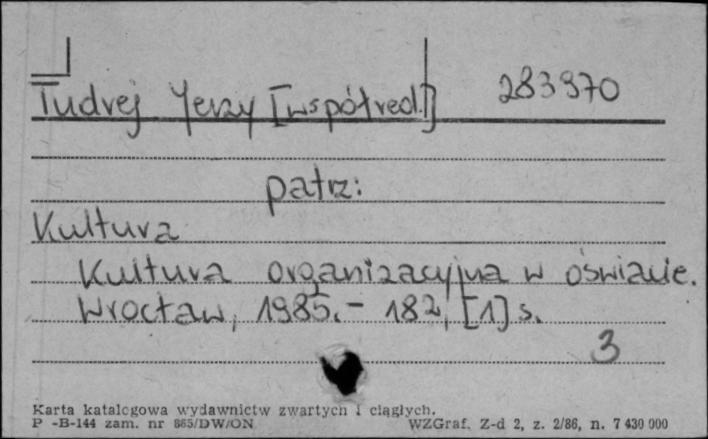 Tudrej Jerzy [współred.] 283970
patrz:
Kultura
Kultura organizacyjna w oświacie.
Wrocław, 1985. - 182, [1] s.
3
Karta katalogowa wydawnictw zwartych i ciągłych.
P -B-144 zam. nr 865/DW/ON WZGraf. Z-d 2, z. 2/86, n. 7 430 000